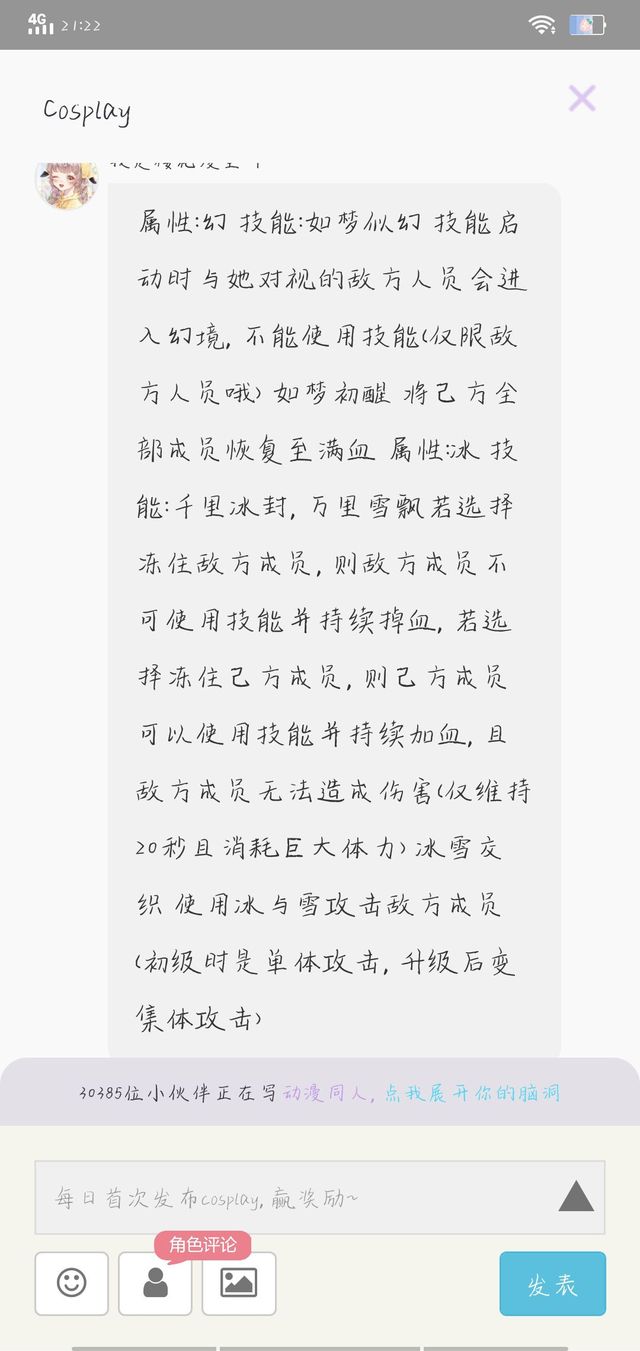 4G 21:22
Cosplay
属性:幻 技能:如梦似幻 技能启
动时与她对视的敌方人员会进
入幻境, 不能使用技能(仅限敌
方人员哦) 如梦初醒 将己方全
部成员恢复至满血 属性:冰 技
能:千里冰封, 万里雪飘若选择
冻住敌方成员, 则敌方成员不
可使用技能并持续掉血, 若选
择冻住己方成员, 则己方成员
可以使用技能并持续加血, 且
敌方成员无法造成伤害(仅维持
20秒且消耗巨大体力) 冰雪交
织 使用冰与雪攻击敌方成员
(初级时是单体攻击, 升级后变
集体攻击)
30385位小伙伴正在写动漫同人, 点我展开你的脑洞
每日首次发布cosplay, 赢奖励~
角色评论
发表